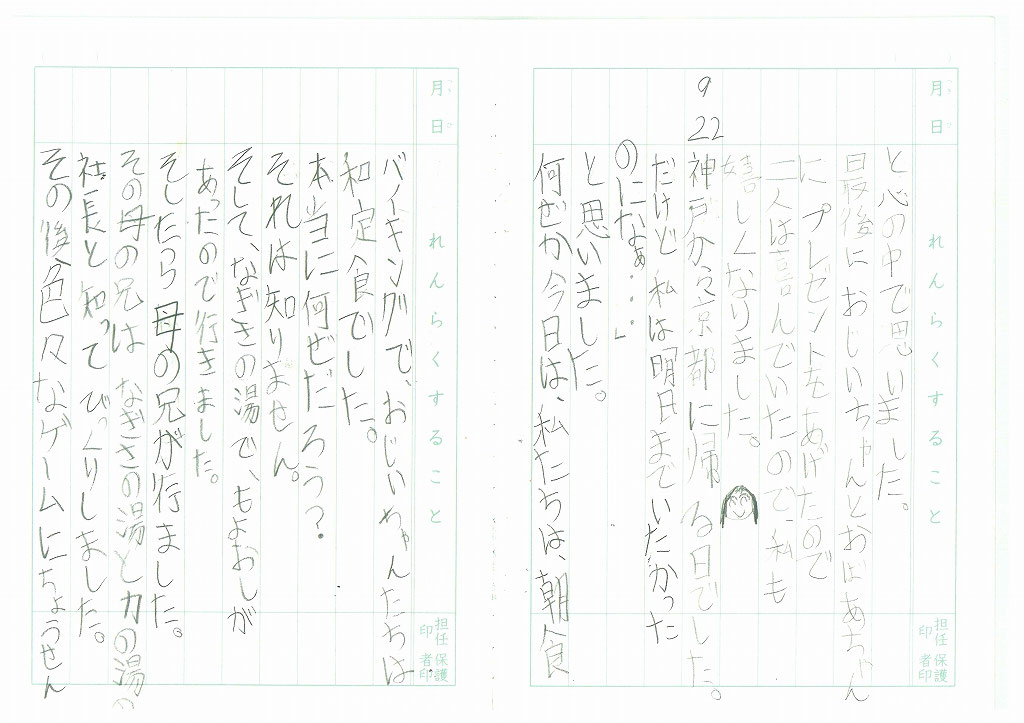 月日
れんらくすること
担任印
保護者印
と心の中で思いました。
最後におじいちゃんとおばあちゃん
にプレゼントをあげたので
二人は喜んでいたので、私も
嬉しくなりました。
9 22
神戸から京都に帰る日でした。
だけど私は明日までいたかった
のになぁ…。」
と思いました。
何ぜか今日は、私たちは、朝食
月日
れんらくすること
担任印
保護者印
バイキングで、おじいちゃんたちは
和定食でした。
本当に何ぜだろう?
それは知りません。
そして、なぎさの湯で、もよおしが
あったので行きました。
そしたら母の兄が行ました。
その母の兄はなぎさの湯と力の湯の
社長と知ってびっくりしました。
その後色々なゲームにちょうせん